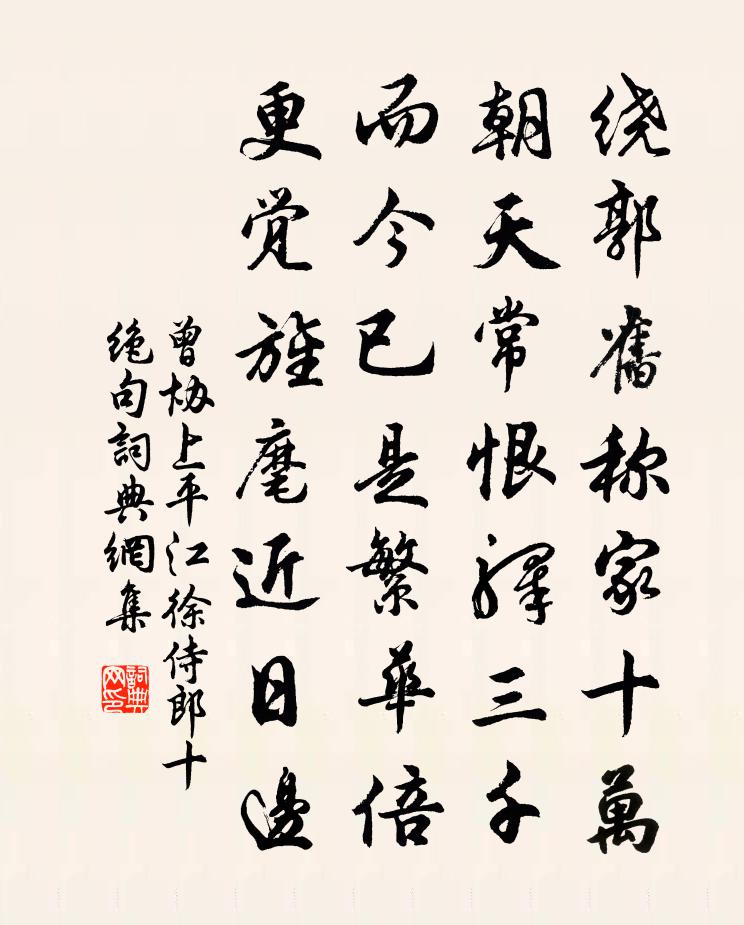 绕郭舊称家十萬
朝天常恨驛三千
而今已是繁華倍
更觉旌麾近日邊
曾协上平江徐侍郎十
绝句詞典網集
詞典网印